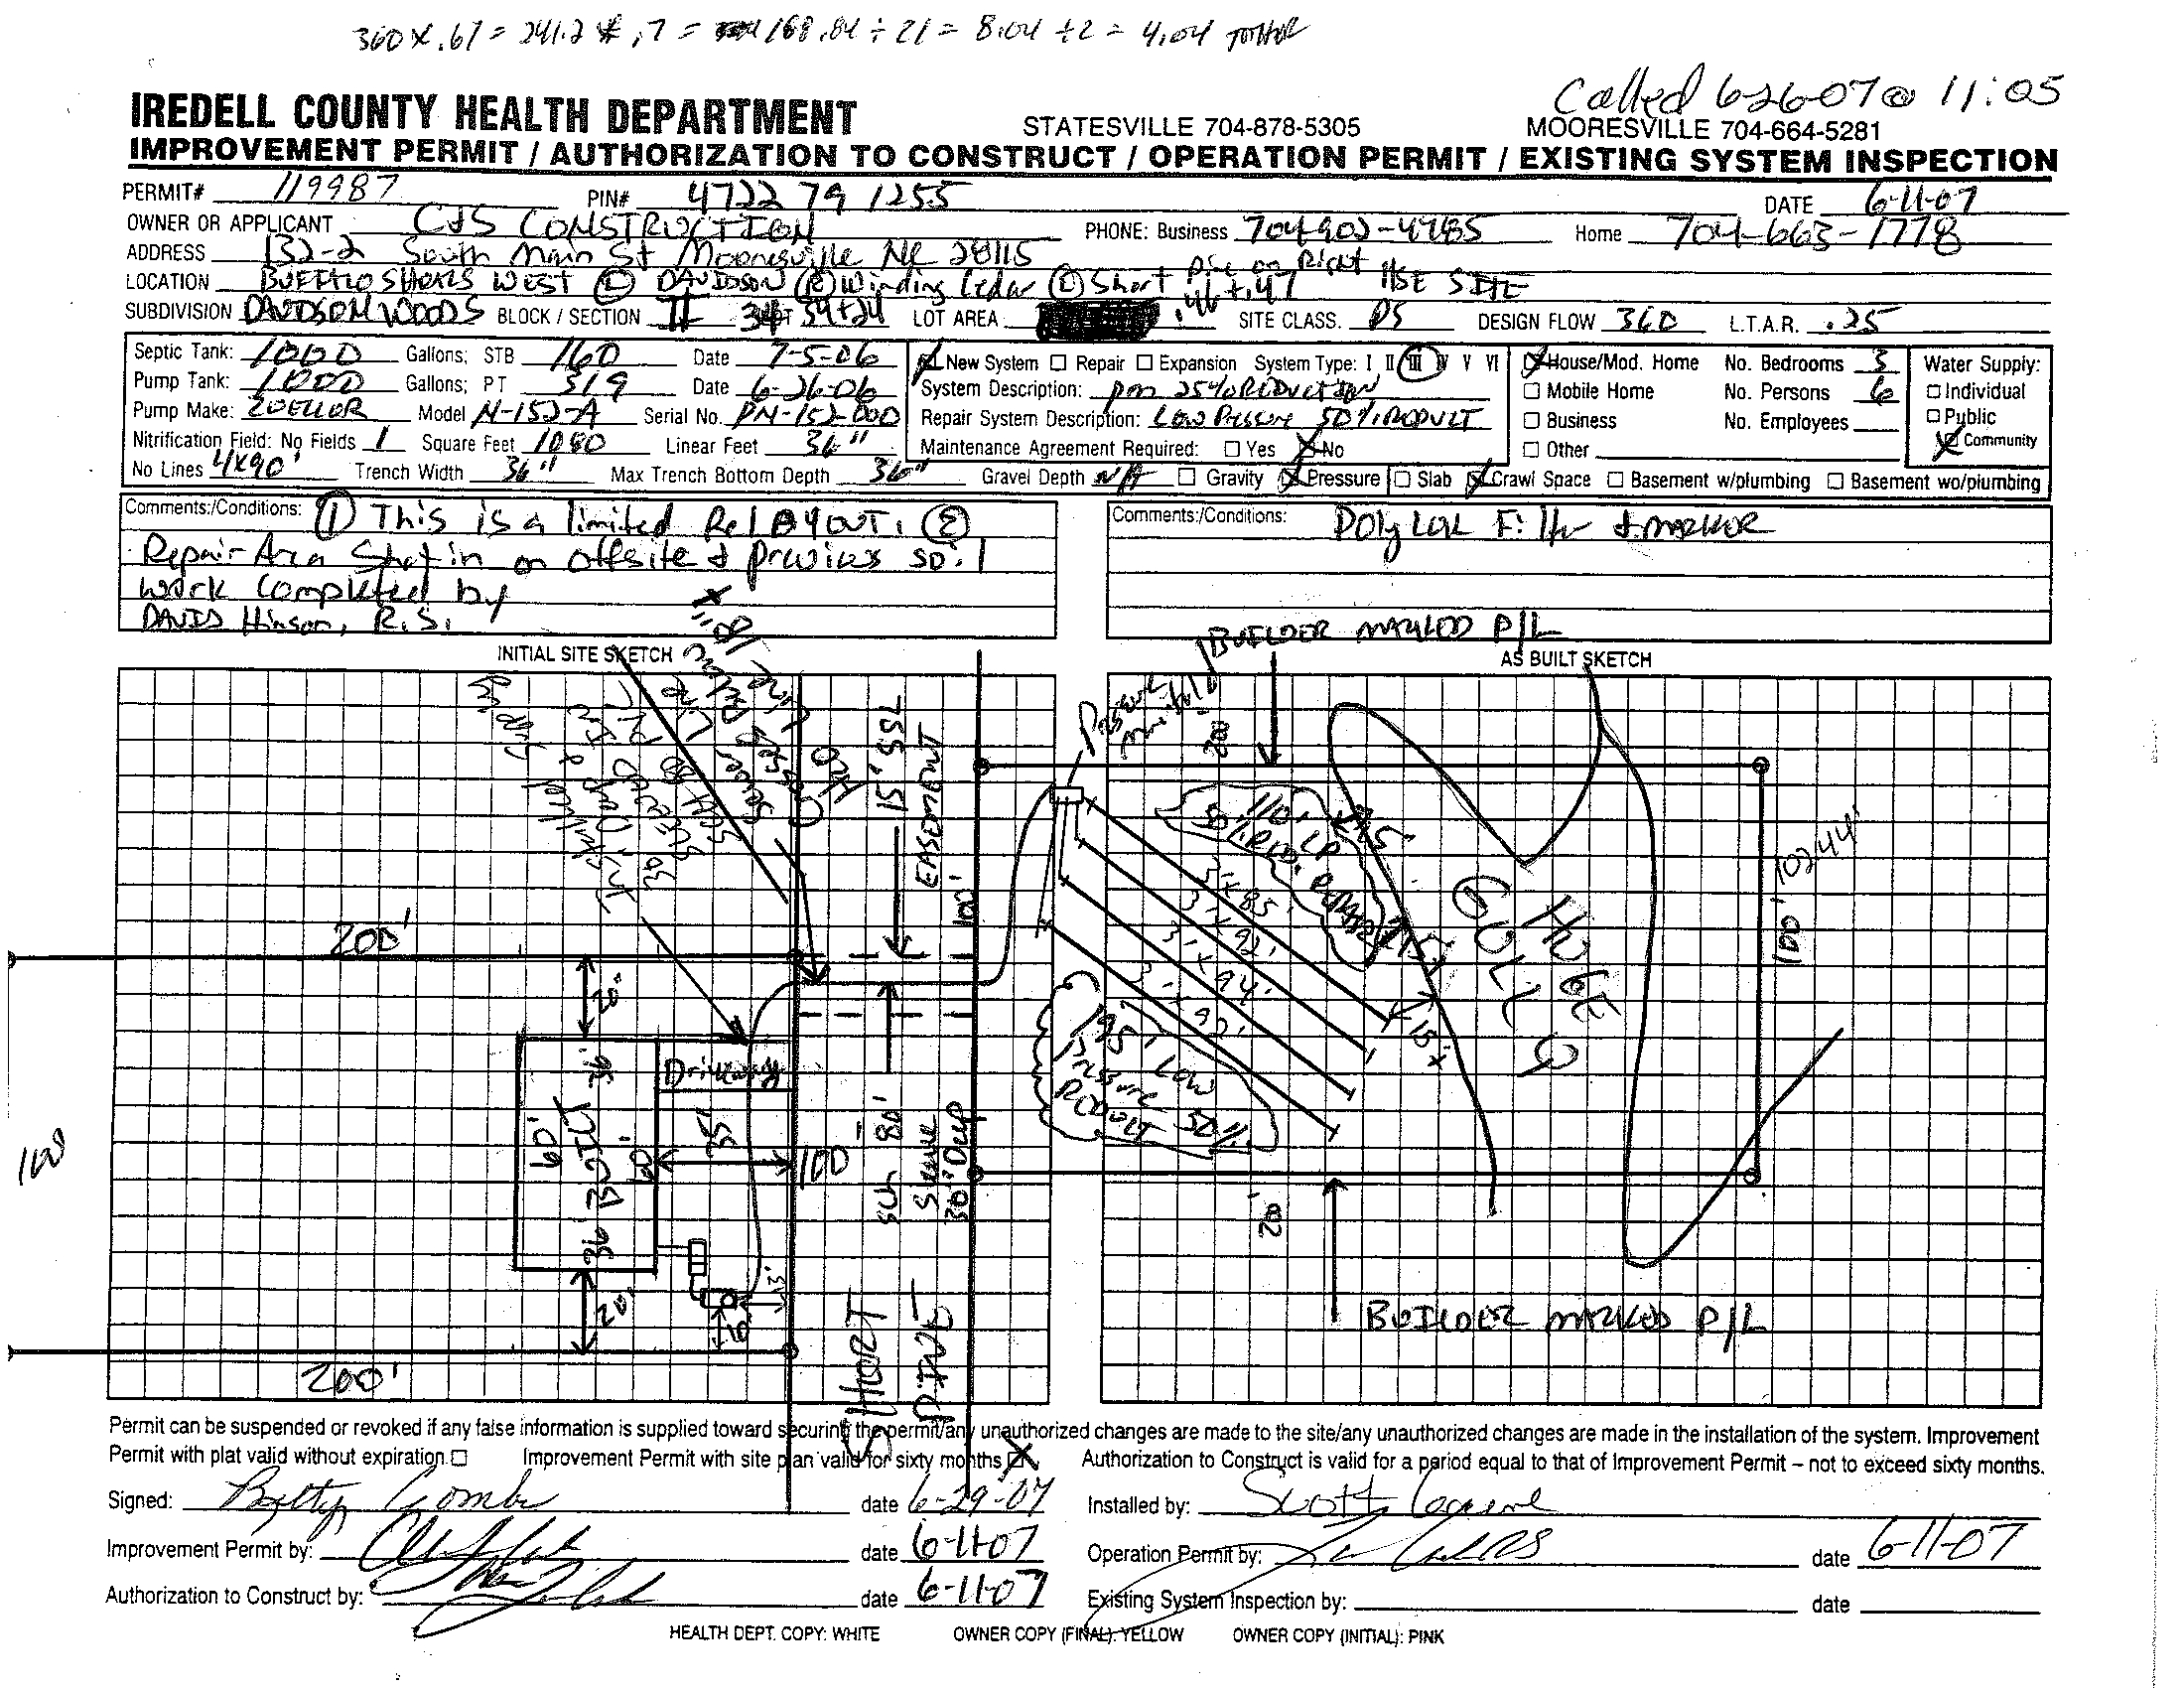 360 x .67 = 241.2 * .7 = 168.84 ÷ 21 = 8.04 ÷ 2 = 4.04
Called 6-26-07 @ 11:05
IREDELL COUNTY HEALTH DEPARTMENT STATESVILLE 704-878-5305 MOORESVILLE 704-664-5281
IMPROVEMENT PERMIT / AUTHORIZATION TO CONSTRUCT / OPERATION PERMIT / EXISTING SYSTEM INSPECTION
PERMIT# 119987 PIN# 4722 79 1255 DATE 6-11-07
OWNER OR APPLICANT CJS CONSTRUCTION PHONE: Business 704-902-4785 Home 704-663-1778
ADDRESS 132-2 South Main St Mooresville NC 28115
LOCATION BUFFLO SHOALS WEST (L) DAVIDSON (R) Winding Cedar (L) Short Pine on Right HSE SITE
SUBDIVISION DAVIDSON WOODS BLOCK / SECTION II 34+24 LOT AREA .46 + .47 SITE CLASS. PS DESIGN FLOW 360 L.T.A.R. .25
Septic Tank: 1000 Gallons; STB 160 Date 7-5-06 New System Repair Expansion System Type: I II III IV V VI House/Mod. Home No. Bedrooms 3 Water Supply:
Pump Tank: 1000 Gallons; PT 519 Date 6-26-06 System Description: 25% REDUCTION Mobile Home No. Persons 6 Individual
Pump Make: ZOELLOR Model N-152-A Serial No. PN-152-000 Repair System Description: LOW PRESSURE 50% REDUCT Business No. Employees Public
Nitrification Field: No Fields 1 Square Feet 1080 Linear Feet 36" Maintenance Agreement Required: Yes No Other Community
No Lines 4x90' Trench Width 36" Max Trench Bottom Depth 36" Gravel Depth N/A Gravity Pressure Slab Crawl Space Basement w/plumbing Basement wo/plumbing
Comments:/Conditions: (1) This is a limited RELAYOUT. (2)
Repair Area Shot in on offsite & previous soil
work completed by
DAVID Hinson, R.S.
Comments:/Conditions: Poly LOK Filter & MARKER
BUILDER MARKED P/L
INITIAL SITE SKETCH
AS BUILT SKETCH
Pressure manifold
200'
15' SSL
EASEMENT
100'
H2O
Line
Sewer
SCH 80
200'
20'
Driveway
60'
60'
35'
100'
20'
10'
13'
200'
100
sch 80
Sleeve
30" Deep
SHORT
PINE
110' LP
50% RED. REPAIR
15'
3'x85'
3'x92'
3'x94'
3'x92'
15'
15'
195' LOW
PRESSURE
50%
REDUCT
HUGE
GULLY
10244'
100'
200'
BUILDER MARKED P/L
Permit can be suspended or revoked if any false information is supplied toward securing the permit/any unauthorized changes are made to the site/any unauthorized changes are made in the installation of the system. Improvement
Permit with plat valid without expiration. Improvement Permit with site plan valid for sixty months Authorization to Construct is valid for a period equal to that of Improvement Permit – not to exceed sixty months.
Signed: date 6-29-07 Installed by: Scott
Improvement Permit by: date 6-11-07 Operation Permit by: date 6-11-07
Authorization to Construct by: date 6-11-07 Existing System Inspection by: date
HEALTH DEPT. COPY: WHITE OWNER COPY (FINAL): YELLOW OWNER COPY (INITIAL): PINK